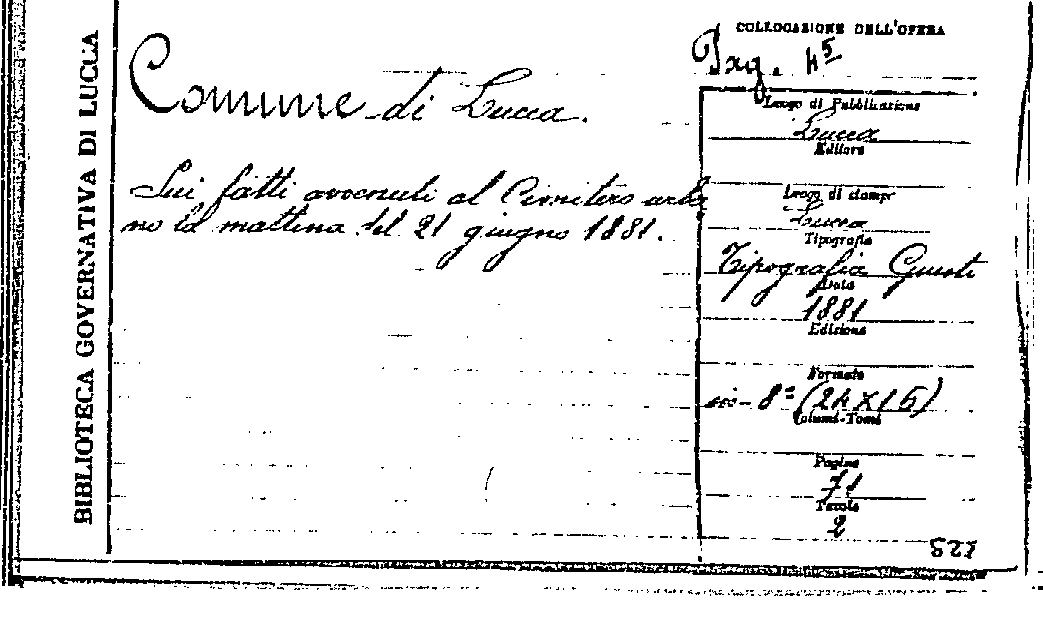 BIBLIOTECA GOVERNATIVA DI LUCCA
Comune di Lucca.
Sui fatti avvenuti al Cimitero urba
no la mattina del 21 giugno 1881.
COLLOCAZIONE DELL'OPERA
Luogo di Pubblicazione
Lucca
Editore
Luogo di stampa
Lucca
Tipografia
Tipografia Giusti
Data
1881
Edizione
Formato
in-8° (24×16)
Volumi-Tomi
Pagine
71
Tavole
2